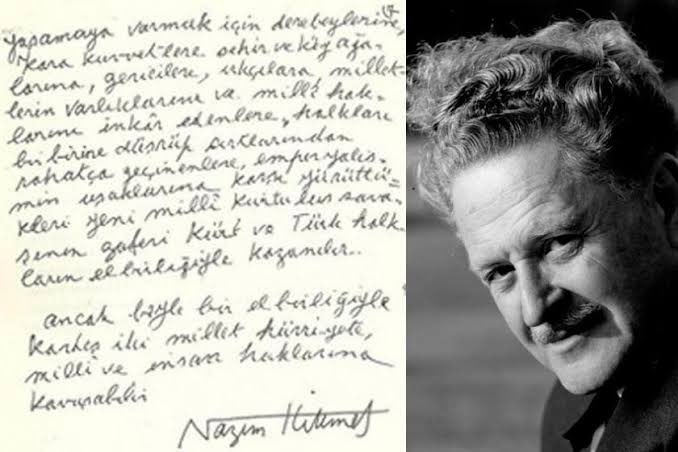 yaşamaya varmak için derebeylerine,
kara kuvvetlere şehir ve köy ağa-
larına, gericilere, ırkçılara, millet-
lerin varlıklarını ve millî hak-
larını inkâr edenlere, halkları
birbirine düşürüp sırtlarından
rahatça geçinenlere, emperyaliz-
min uşaklarına karşı yürüttü-
kleri yeni millî kurtuluş sava-
şının zaferi Kürt ve Türk halk-
ların elbirliğiyle kazanılır..
ancak böyle bir elbirliğiyle
kardeş iki millet hürriyete,
millî ve insan haklarına
kavuşabilir
Nazım Hikmet